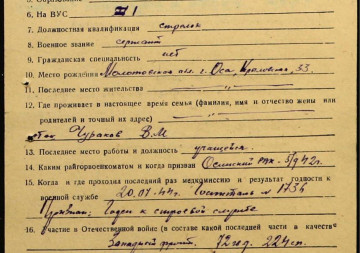 6. На ВУС 1
7. Должностная квалификация стрелок
8. Военное звание сержант
9. Гражданская специальность нет
10. Место рождения Молотовская обл. г. Оса, 33
11. Последнее место жительства — " —
12. Где проживает в настоящее время семья (фамилия, имя и отчество жены или
родителей и точный их адрес) — " —
Чураков В.М
13. Последнее место работы и должность учащийся
14. Каким райгорвоенкоматом и когда призван Осинский РВК - 5/942г.
15. Когда и где проходил последний раз медкомиссию и результат годности к
военной службе 20.07-44г. Госпиталь N 1736
Признан: годен к строевой службе
16. Участие в Отечественной войне (в составе какой последней части в качестве
Западный фронт. 72 гвд. 224 сп.